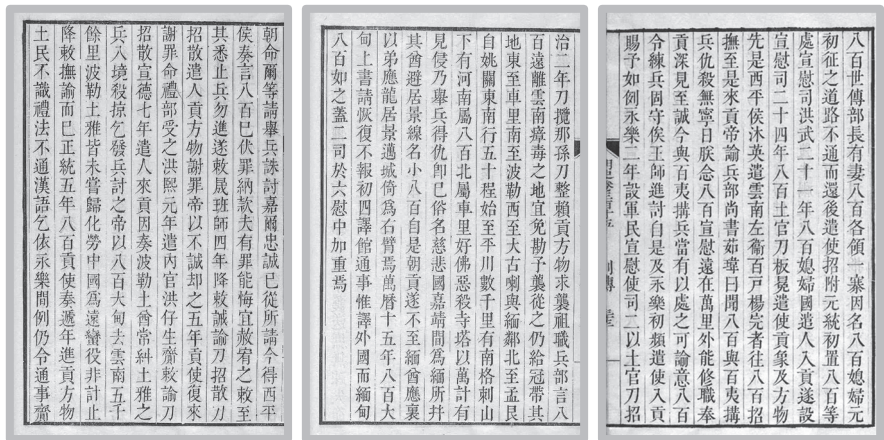 八百世傳部長有妻八百各領一寨因名八百媳婦元
初征之道路不通而還後遣使招附元統初置八百等
處宣慰司洪武二十一年八百媳婦國遣人入貢遂設
宣慰司二十四年八百土官刀板冕遣使貢象及方物
先是西平侯沐英遣雲南左衞百戶楊完者往八百招
撫至是來貢帝諭兵部尚書茹瑺曰聞八百與百夷搆
兵仇殺無寧日朕念八百宣慰遠在萬里外能修職奉
貢深見至誠今與百夷搆兵當有以處之可諭意八百
令練兵固守俟王師進討自是及永樂初頻遣使入貢
賜予如例永樂二年設軍民宣慰使司二以土官刀招
治二年刀攬那孫刀整賴貢方物求襲祖職兵部言八
百遠離雲南瘴毒之地宜免勘予襲從之仍給冠帶其
地東至車里南至波勒西至大古喇與緬鄰北至孟艮
自姚關東南行五十程始至平川數千里有南格剌山
下有河南屬八百北屬車里好佛惡殺寺塔以萬計有
見侵乃舉兵得仇即已俗名慈悲國嘉靖間為緬所幷
其酋避居景線名小八百自是朝貢遂不至緬酋應裏
以弟應龍居景邁城倚為右臂焉萬曆十五年八百大
甸上書請恢復不報初四譯館通事惟譯外國而緬甸
八百如之蓋二司於六慰中加重焉
朝命爾等請舉兵誅討嘉爾忠誠已從所請今得西平
侯奏言八百已伏罪納款夫有罪能悔宜赦宥之敕至
其悉止兵勿進遂敕晟班師四年降敕誡諭刀招散刀
招散遣人貢方物謝罪帝以不誠却之五年貢使復來
謝罪命禮部受之洪熙元年遣內官洪仔生齎敕諭刀
招散宣德七年遣人來貢因奏波勒土酋常糾土雅之
兵入境殺掠乞發兵討之帝以八百大甸去雲南五千
餘里波勒土雅皆未嘗歸化勞中國為遠蠻役非計止
降敕撫諭而已正統五年八百貢使奏遞年進貢方物
土民不識禮法不通漢語乞依永樂間例仍令通事齎